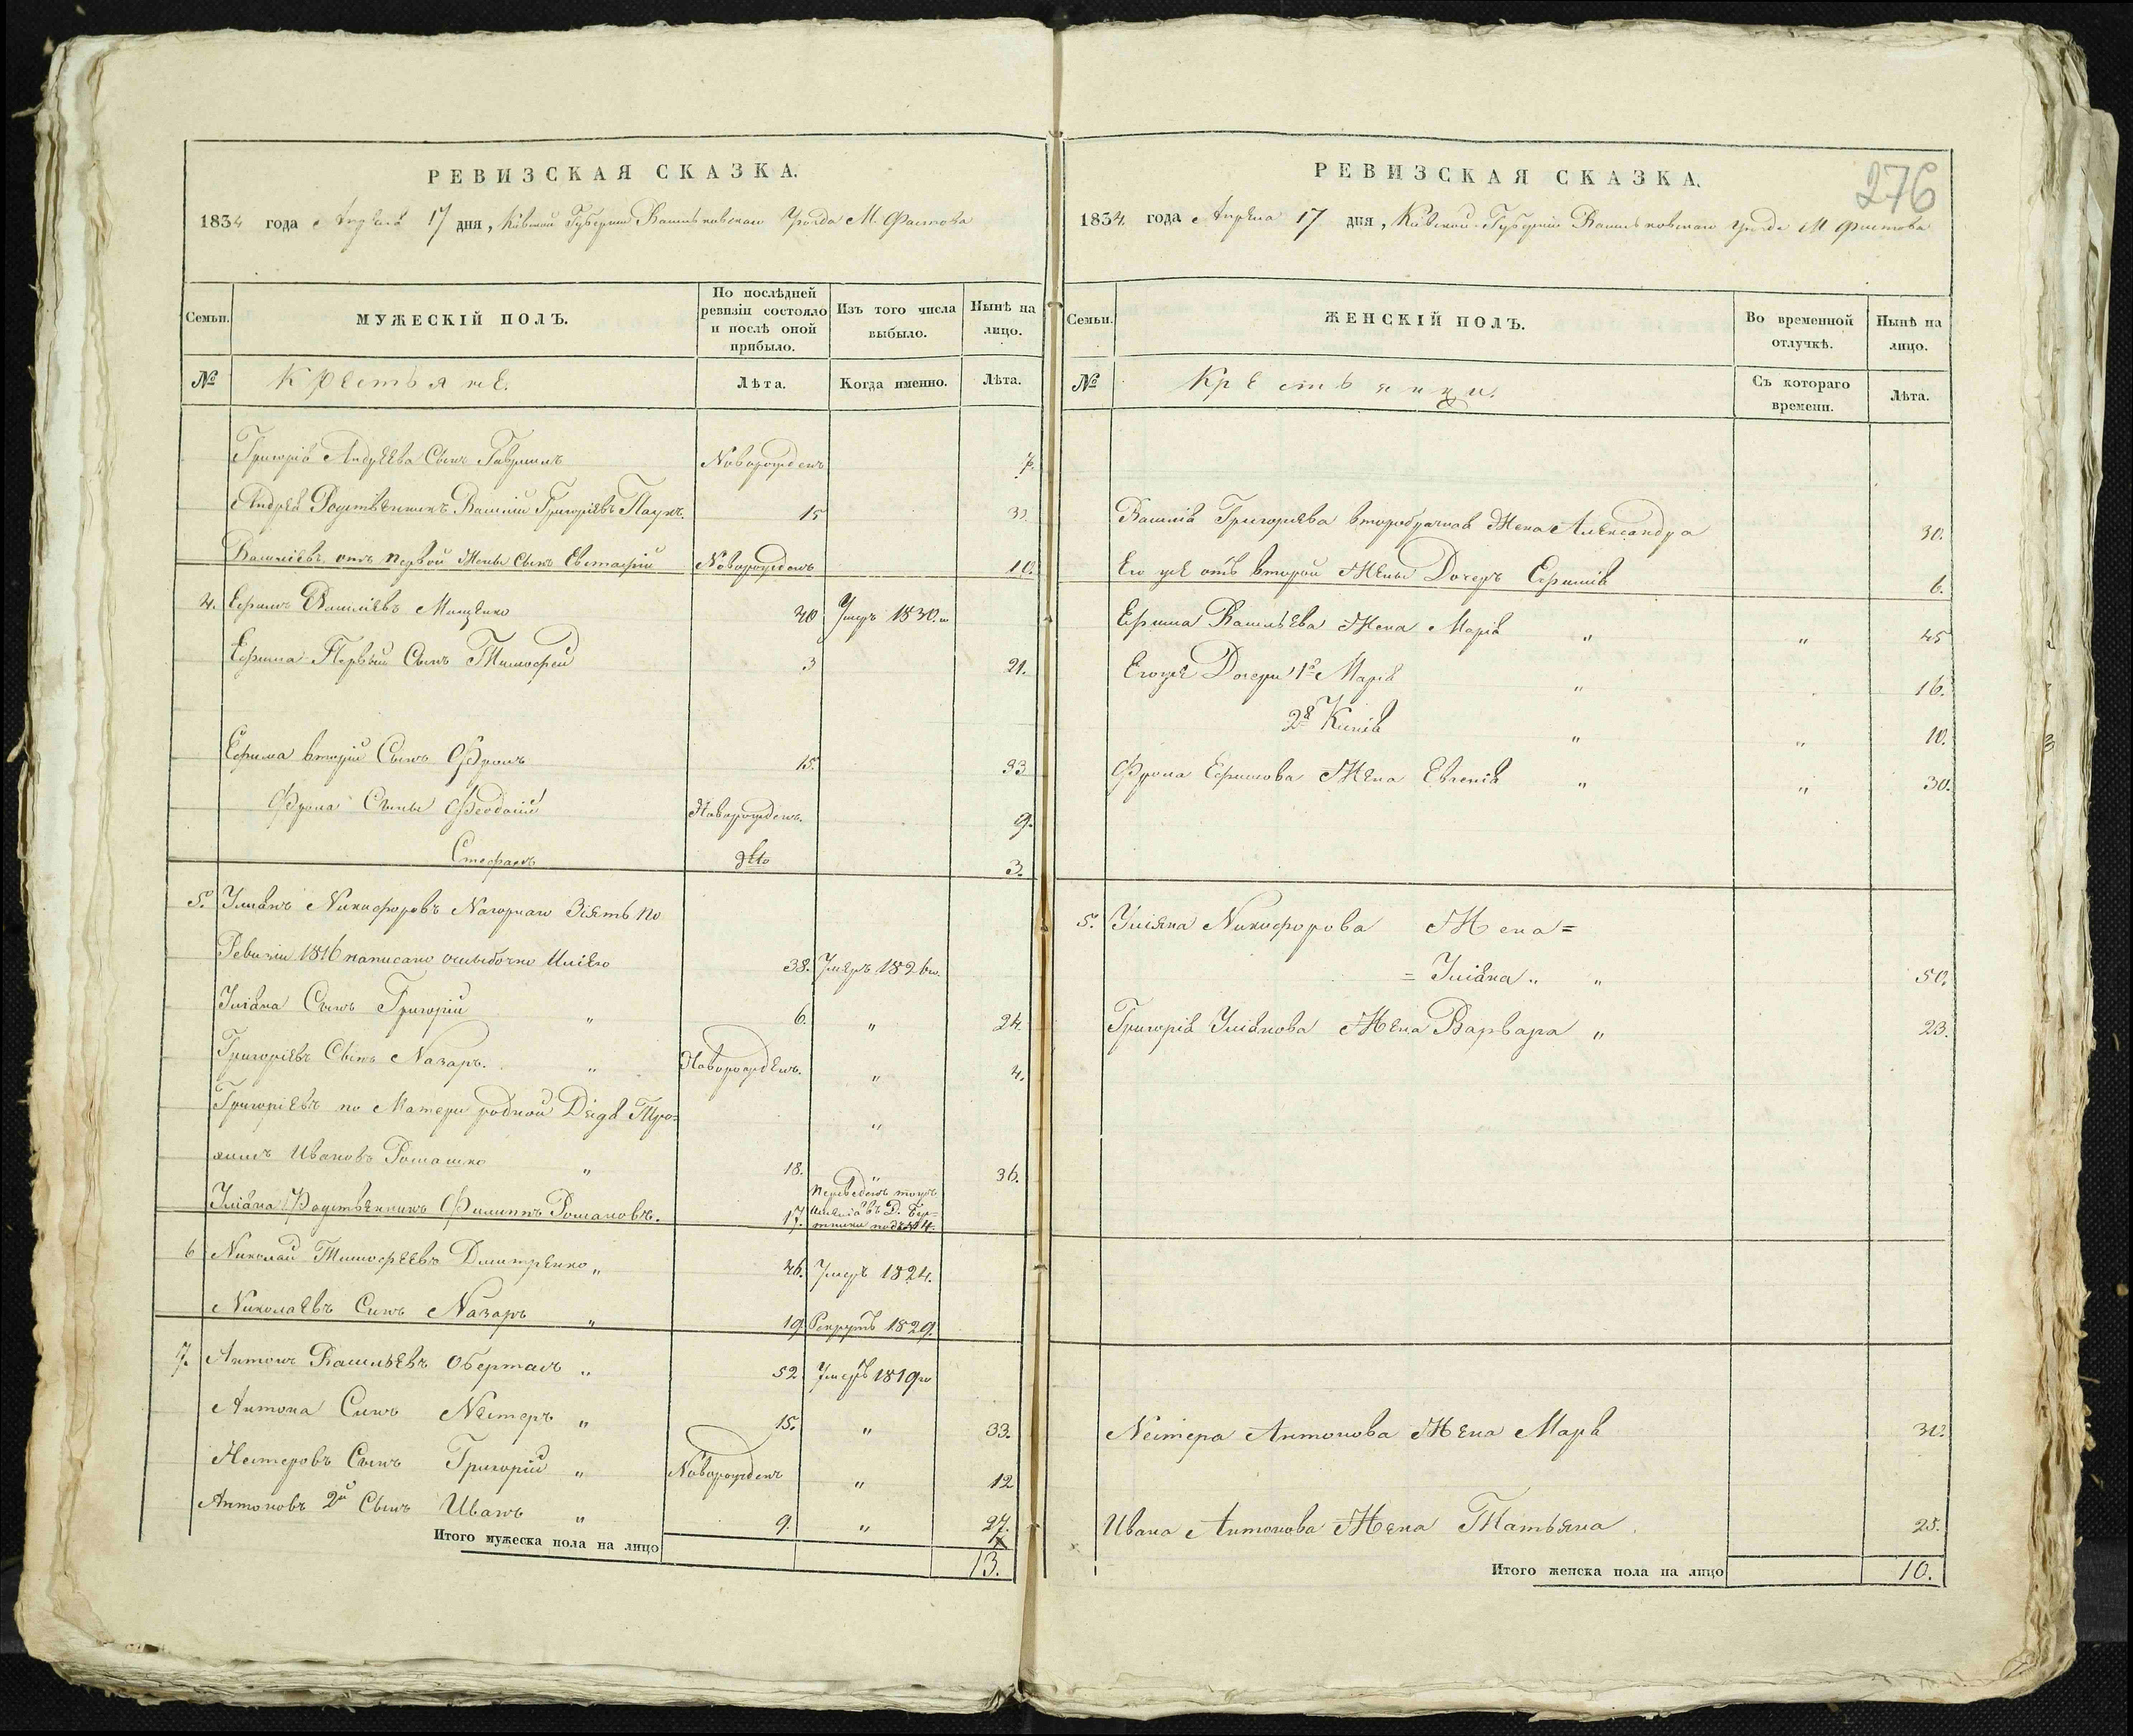 РЕВИЗСКАЯ СКАЗКА.
1834 года Апреля 17 дня, Кіевской Губерніи Васильковскаго Уѣзда М. Фастова
Семьи.
МУЖЕСКІЙ ПОЛЪ.
По послѣдней
ревизіи состояло
и послѣ оной
прибыло.
Изъ того числа
выбыло.
Нынѣ на
лицо.
№
Крестьяне.
Лѣта.
Когда именно.
Лѣта.
Григорія Андрѣева Сынъ Гаврилъ Новорожденъ 7.
Андрея Родственникъ Василій Григоріевъ 15
Василіевъ отъ первой Жены Сынъ Евстафій Новорожденъ 10.
4. Ефимъ Василіевъ Мищенко 40 Умеръ 1830.го
Ефима Первый Сынъ Тимофей 3 21.
Ефима вторій Сынъ Фролъ 15. 33
Фрола Сыны Феодосій Новорожденъ. 9.
Стефанъ 3.
5. Уліанъ Никифоровъ Нагорнаго Зять по
Ревизіи 1816 написано ошибочно 38. Умеръ 1826го.
Уліана Сынъ Григорій „ 6. „ 24.
Григоріевъ Сынъ Назаръ. „ Новорожденъ. „ 4.
Григоріевъ по Матери родной Тро=
химъ Ивановъ Ромашко „ 18. „ 36.
Уліана Родственникъ Филиппъ Романовъ. 17. переведенъ тогожъ
имѣнія въ Д.
6 Николай Тимофеевъ Дмитренко „ 46. Умеръ 1824.
Николаевъ Синъ Назаръ „ 19. Рекрутъ 1829.
7. Антонъ Васильевъ Оберташъ „ 52 Умеръ 1819го
Антона Синъ Нестеръ „ 15. „ 33.
Нестеровъ Сынъ Григорій „ Новорожденъ „ 12
Антоновъ 2й Сынъ Иванъ „ 9. „ 27.
Итого мужеска пола на лицо 13.
276
РЕВИЗСКАЯ СКАЗКА.
1834. года Апреля 17 дня, Кіевской Губерніи Васильковскаго Уѣзда М Фастова
Семьи.
ЖЕНСКІЙ ПОЛЪ.
Во временной
отлучкѣ.
Нынѣ на
лицо.
№
Крестьянки.
Съ котораго
времени.
Лѣта.
Василія Григориева второбрачная Жена Александра 30.
Его же отъ второй Жены Дочерь 6.
Ефима Васильева Жена Марія „ „ 45
Егоже Дочери 1я Марія „ 16.
2я „ „ 10.
Фрола Ефимова Жена Евгенія „ „ 30.
5. Уліяна Никифорова Жена =
= Уліана „ „ 50.
Григорія Уліанова Жена Варвара „ 23.
Нестера Антонова Жена Маря 31.
Ивана Антонова Жена Татьяна 25.
Итого женска пола на лицо 10.